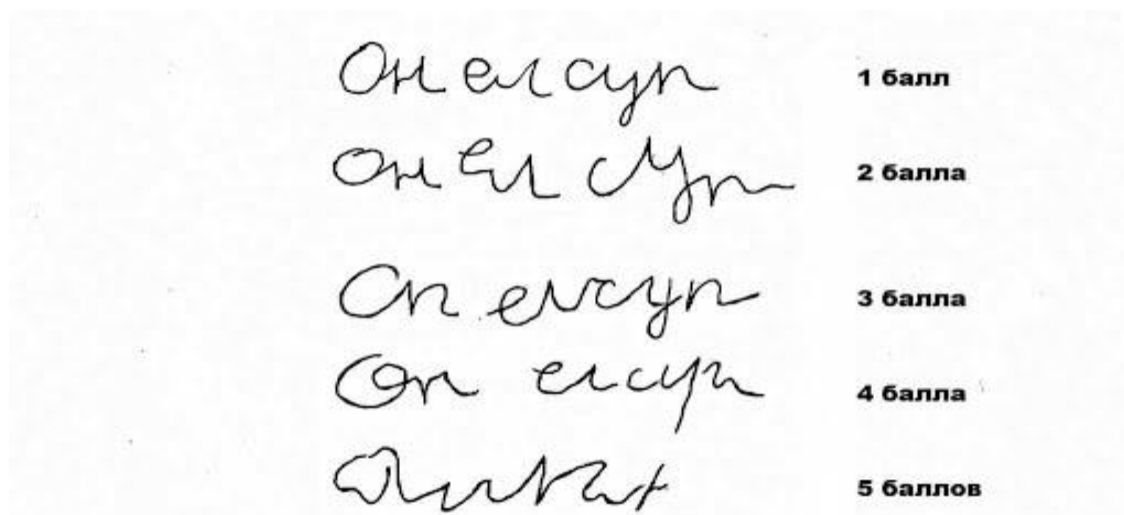 Он ел суп 1 балл
он ел суп 2 балла
Оп елсуп 3 балла
Оп елсуп 4 балла
5 баллов